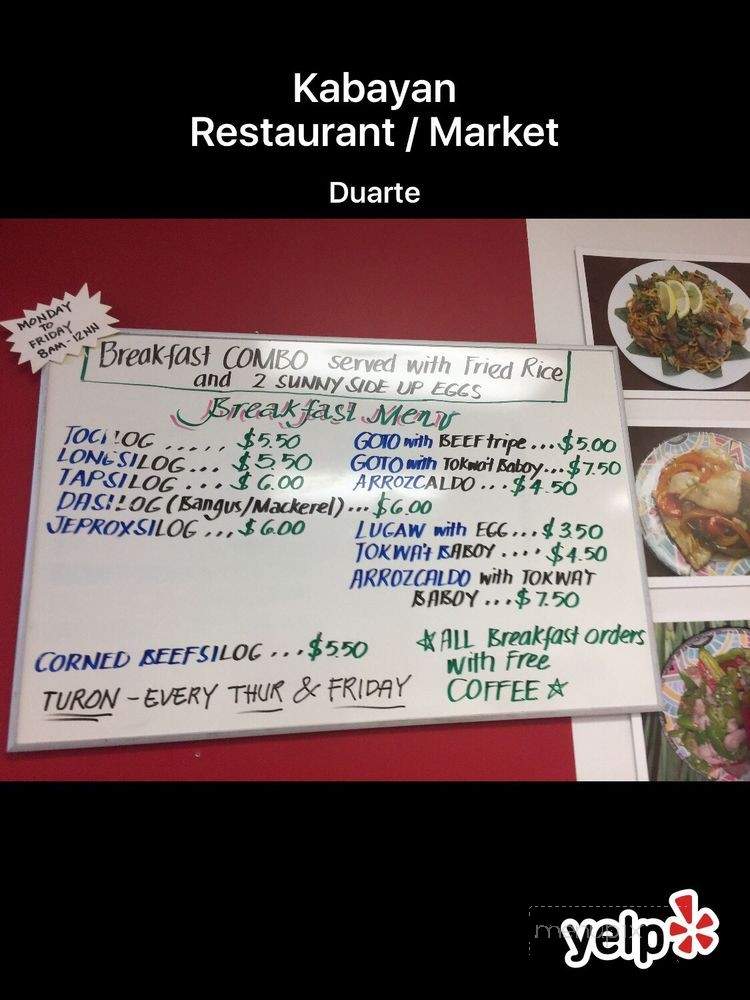 Kabayan
Restaurant / Market
Duarte
MONDAY
TO
FRIDAY
8AM-12NN
Breakfast COMBO served with Fried Rice
and 2 SUNNY SIDE UP EGGS
Breakfast Menu
TOCILOG ..... $5.50
LONGSILOG... $5.50
TAPSILOG ... $6.00
DASILOG (Bangus/Mackerel)... $6.00
JEPROXSILOG ... $6.00
GOTO with BEEF tripe... $5.00
GOTO with Tokwa't Baboy... $7.50
ARROZCALDO ... $4.50
LUGAW with EGG... $3.50
TOKWA't BABOY .... $4.50
ARROZCALDO with TOKWAT
BABOY ... $7.50
CORNED BEEFSILOG ... $5.50
☆ALL Breakfast orders
with Free
COFFEE☆
TURON - EVERY THUR & FRIDAY
yelp